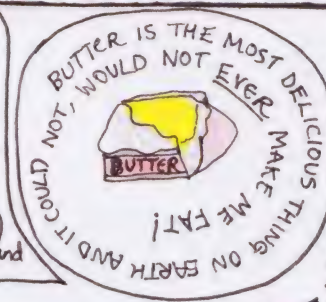 BUTTER IS THE MOST DELICIOUS THING ON EARTH AND IT COULD NOT, WOULD NOT EVER MAKE ME FAT!
BUTTER
nd